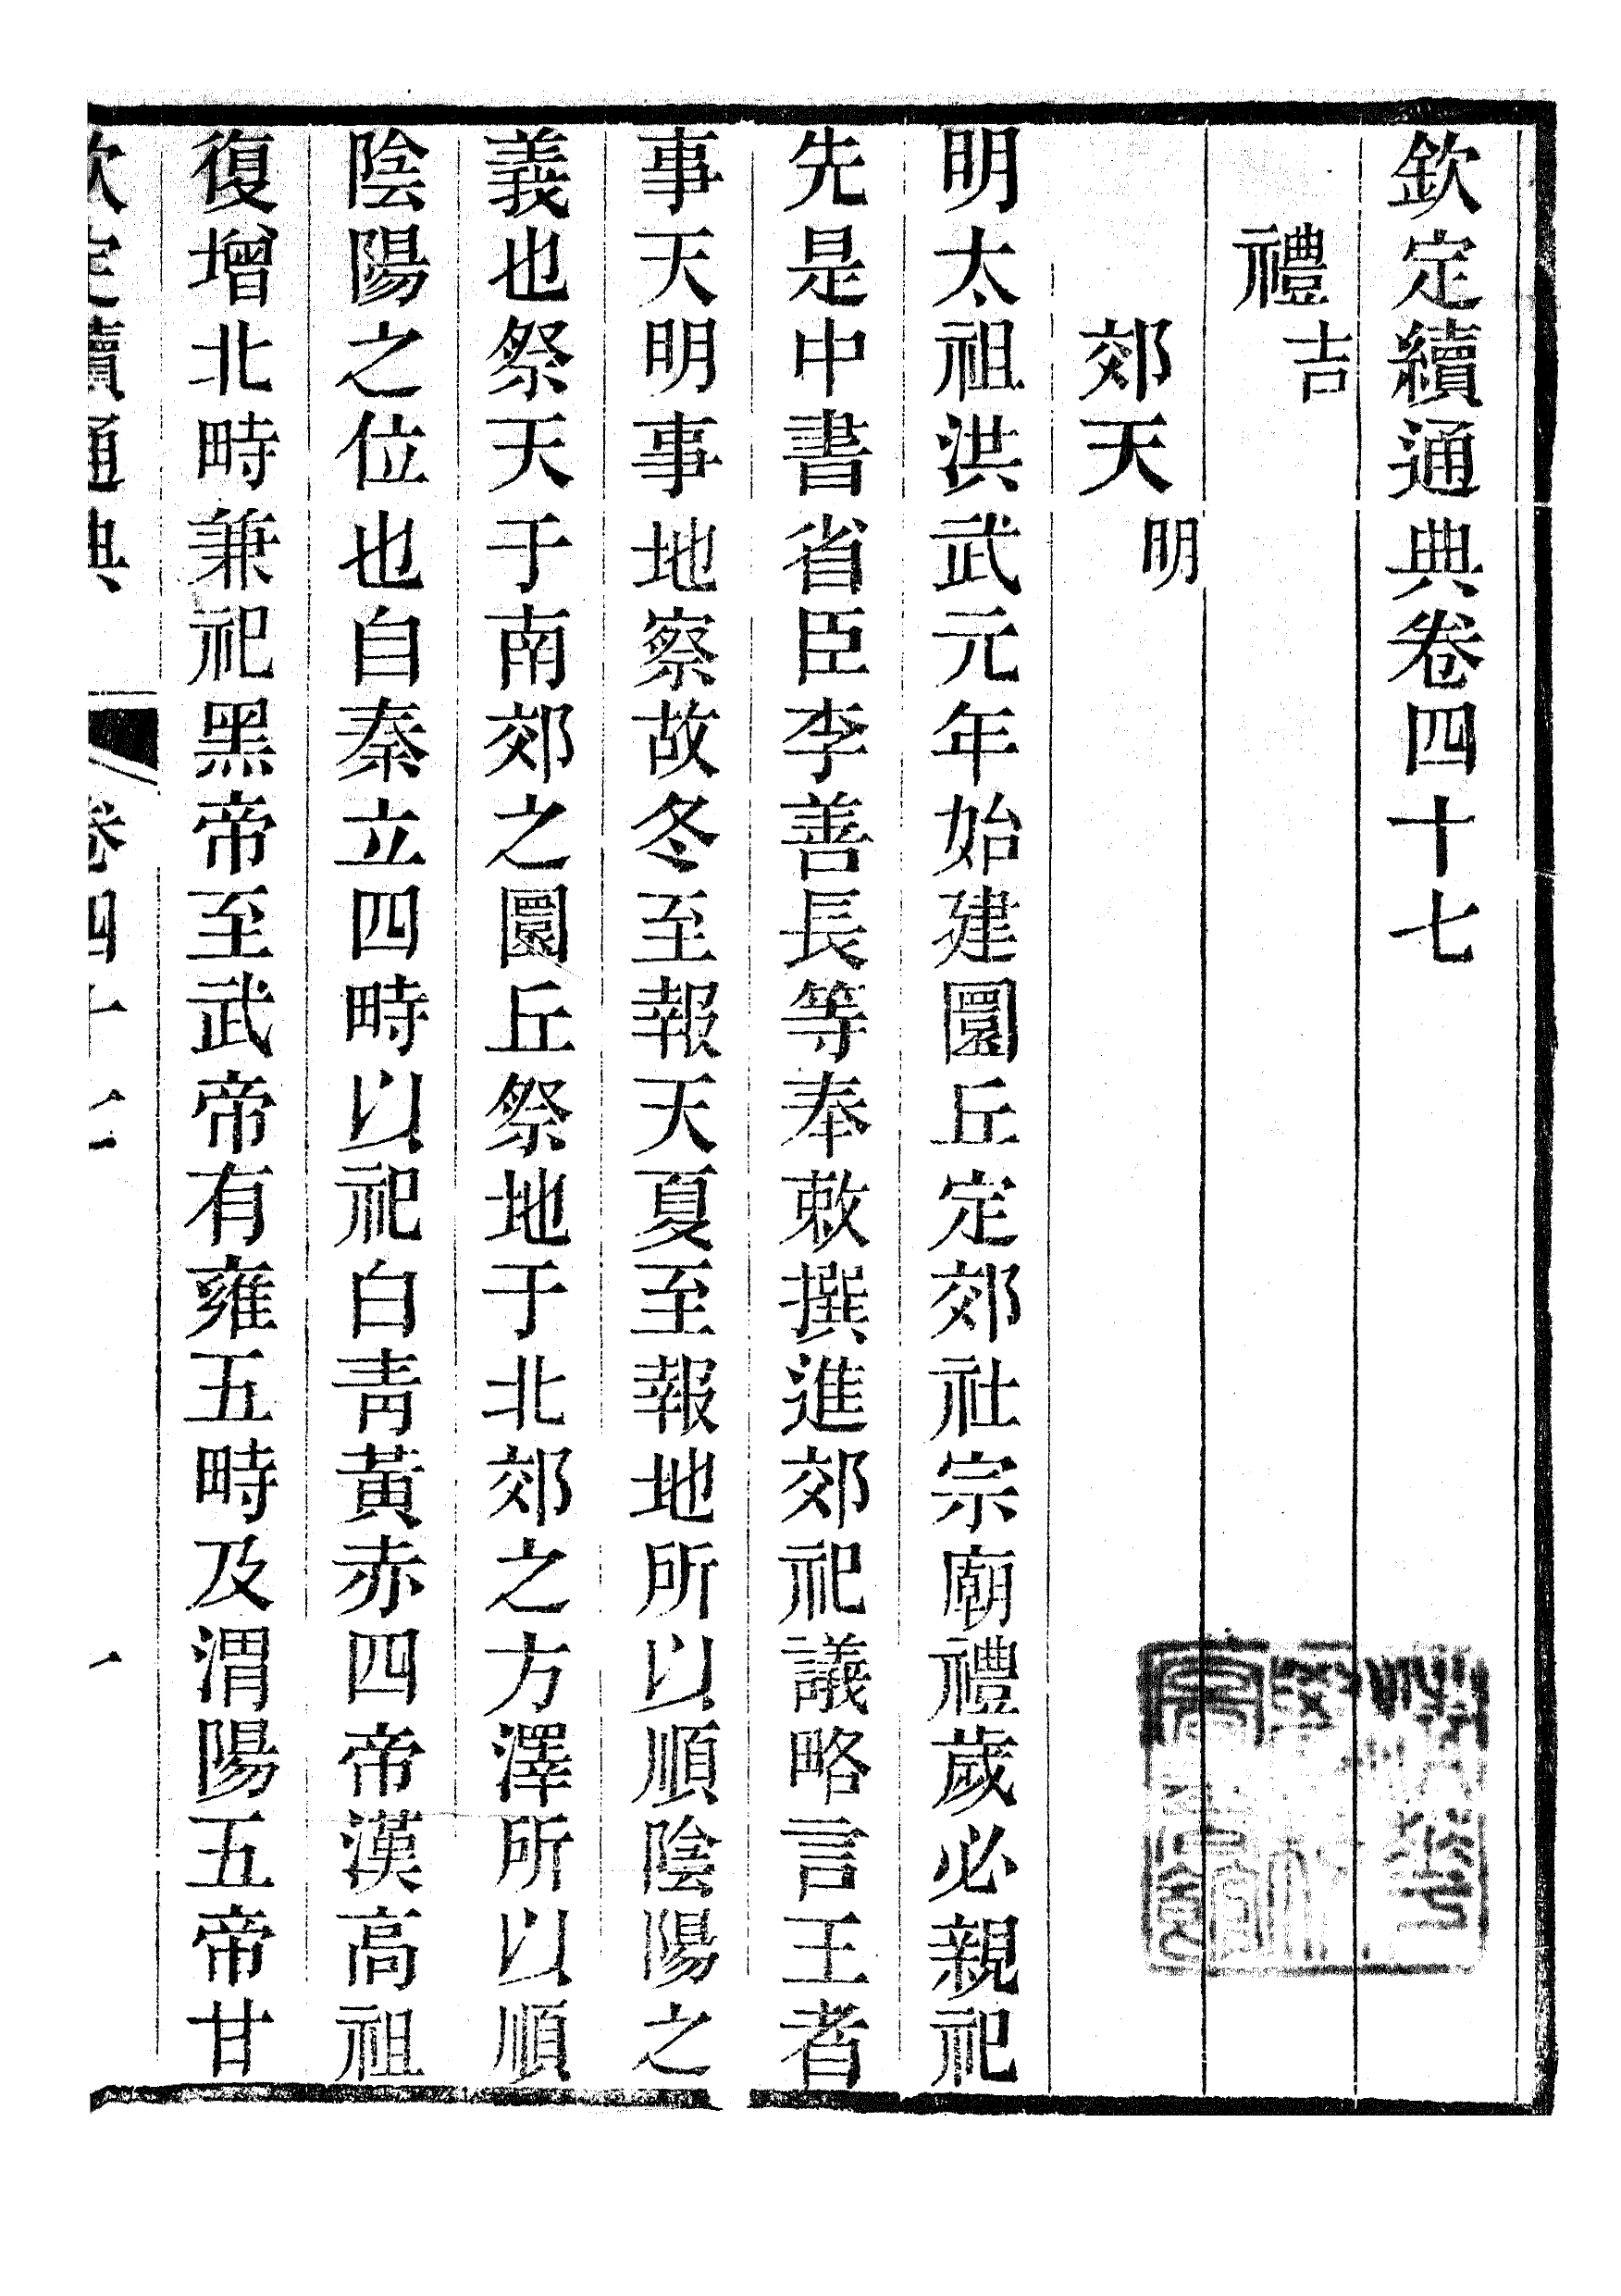 欽定續通典卷四十七
禮吉
郊天明
明太祖洪武元年始建圜丘定郊社宗廟禮歲必親祀
先是中書省臣李善長等奉敕撰進郊祀議略言王者
事天明事地察故冬至報天夏至報地所以順陰陽之
義也祭天于南郊之圜丘祭地于北郊之方澤所以順
陰陽之位也自秦立四畤以祀白青黃赤四帝漢高祖
復增北畤兼祀黑帝至武帝有雍五畤及渭陽五帝甘
欽定續通典 卷四十七 一